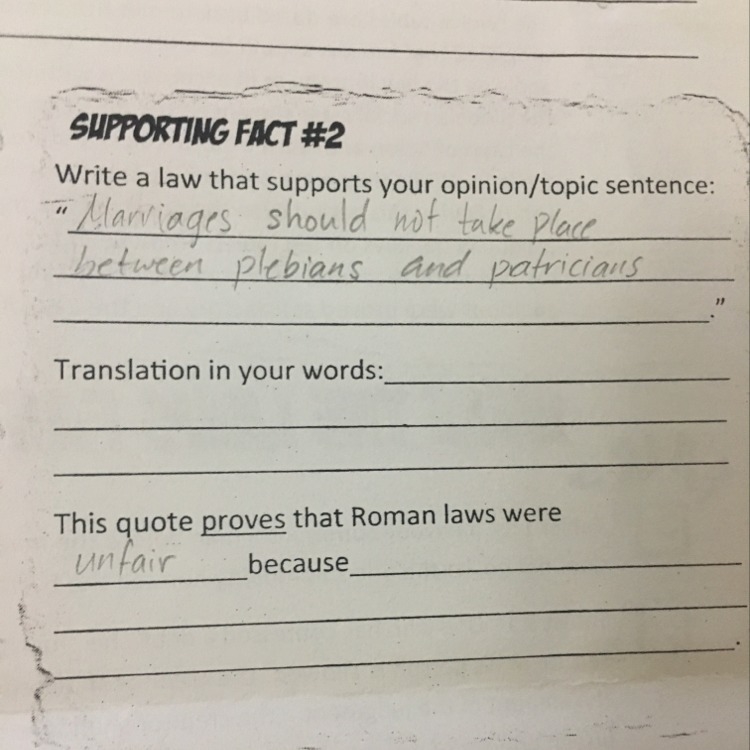 SUPPORTING FACT #2
Write a law that supports your opinion/topic sentence:
" Marriages should not take place
between plebians and patricians
."
Translation in your words:
This quote proves that Roman laws were
unfair because
.